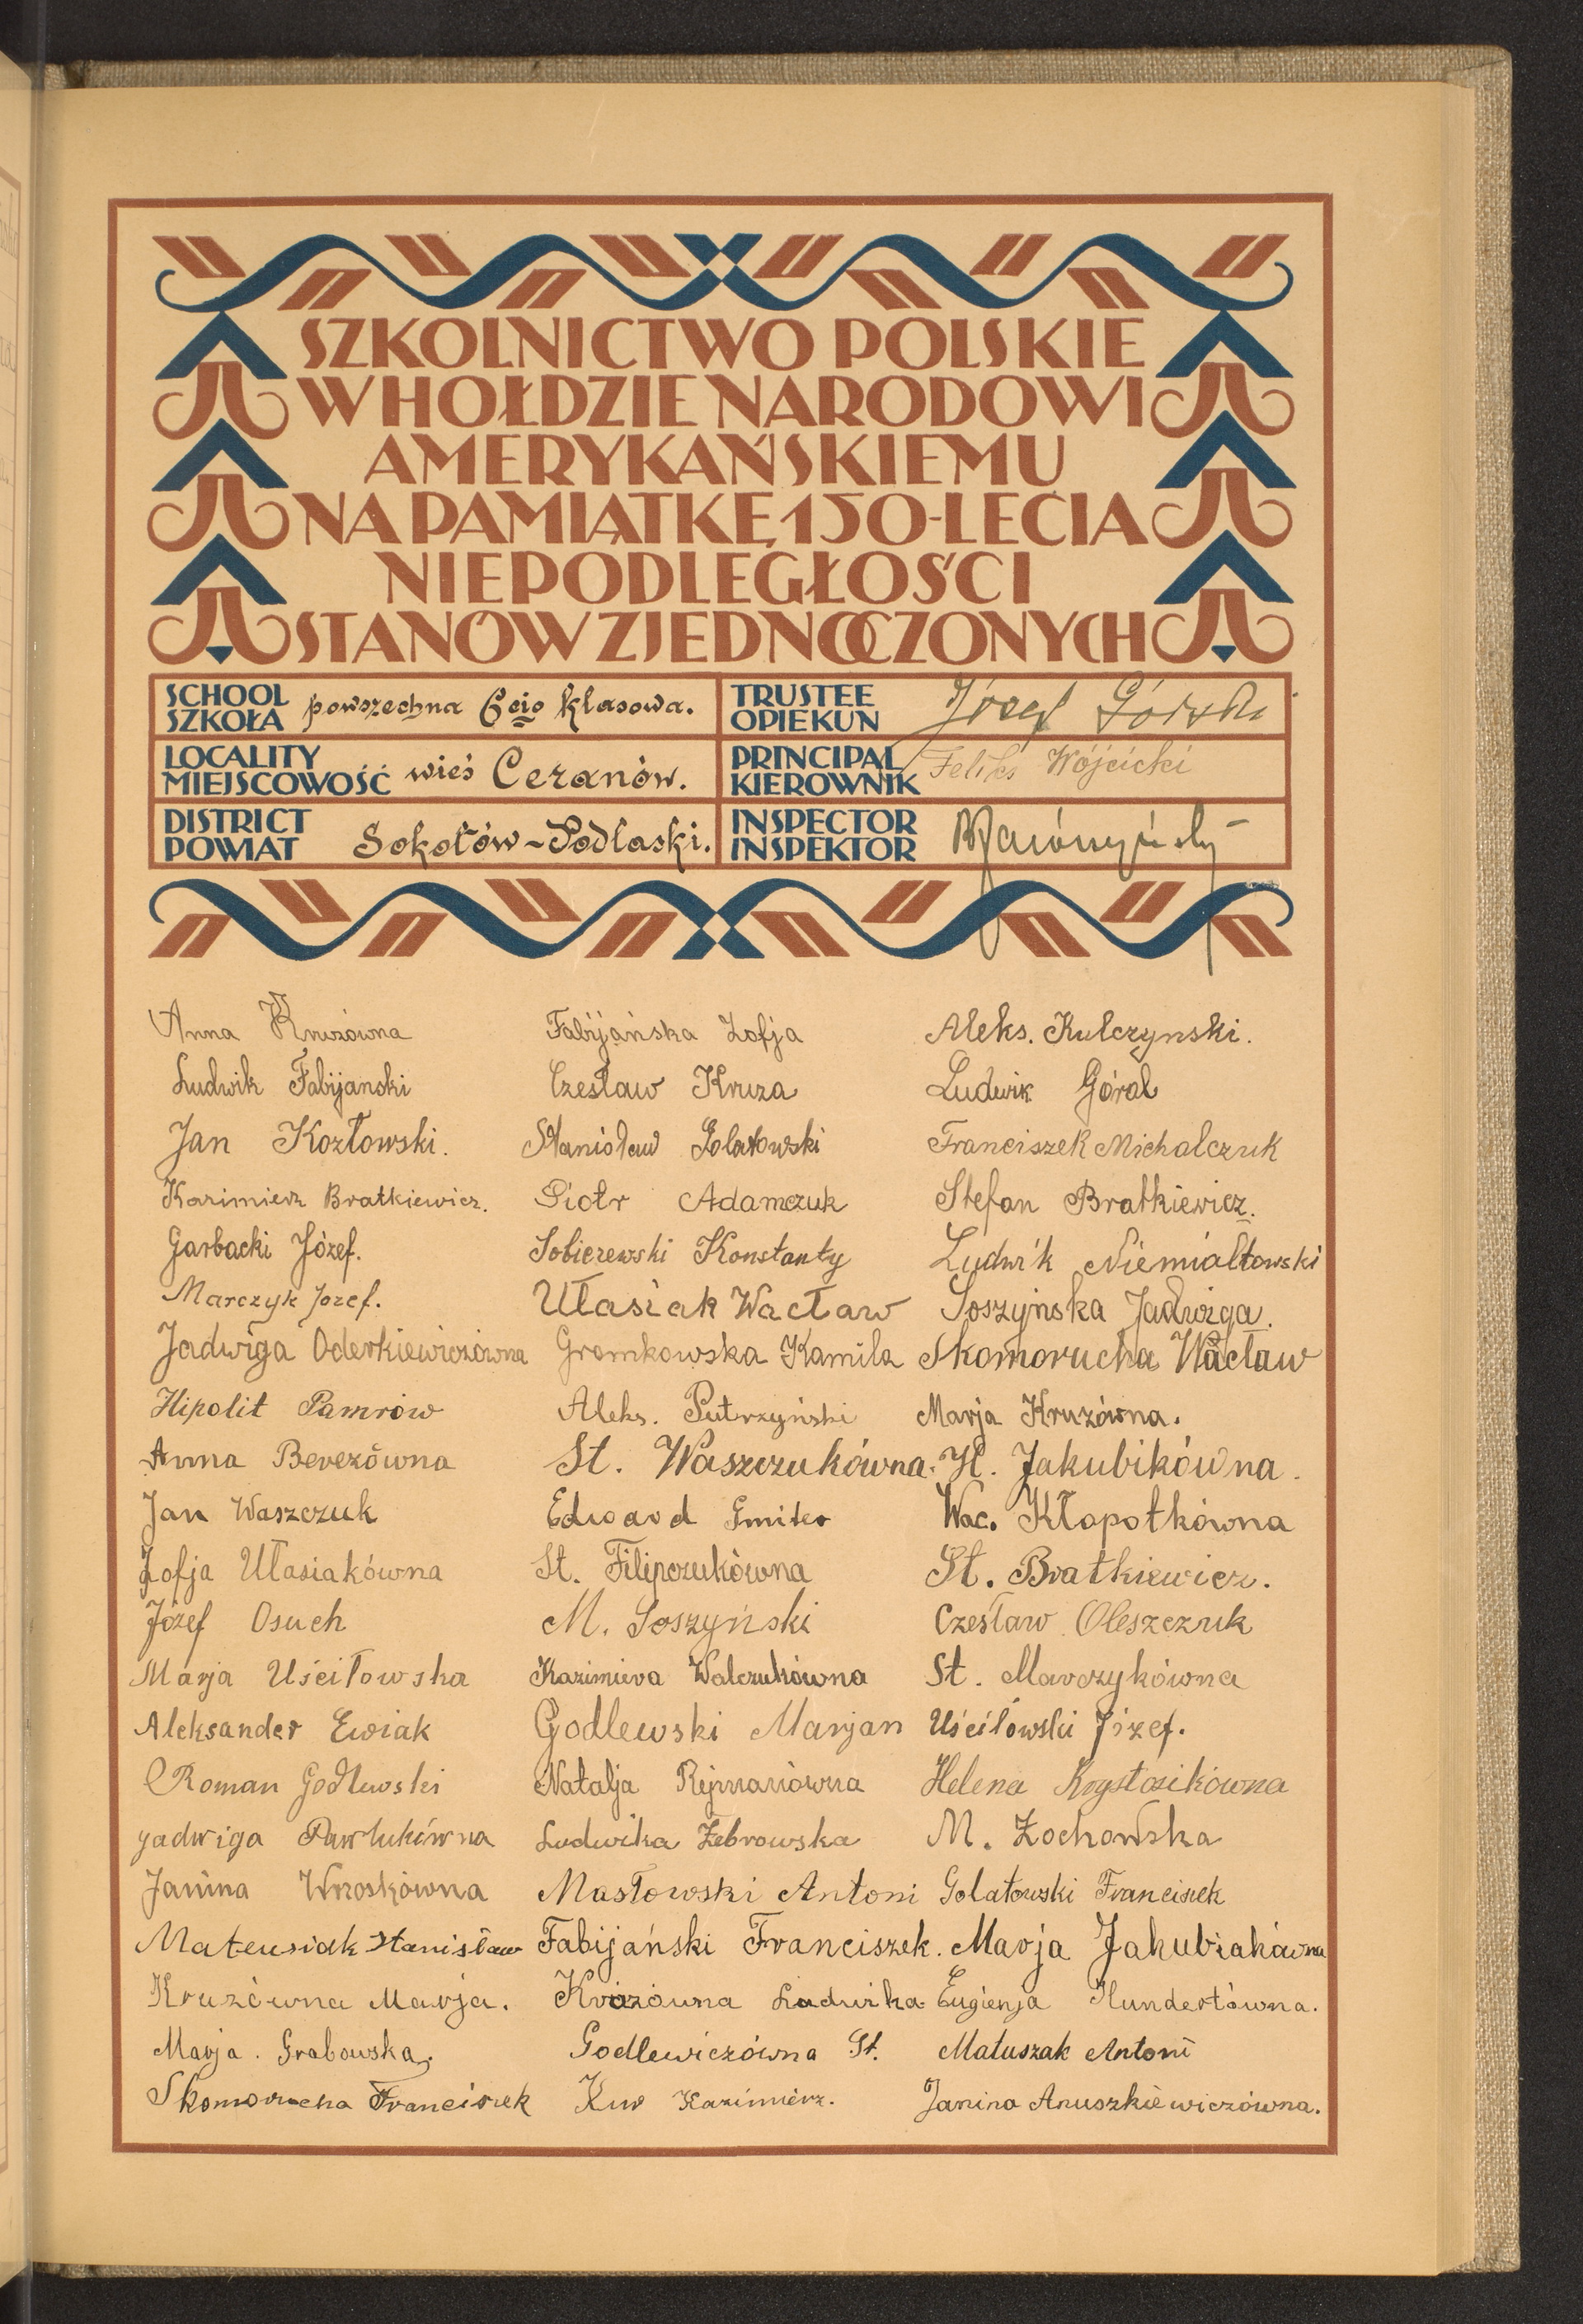 SZKOLNICTWO POLSKIE
W HOŁDZIE NARODOWI
AMERYKAŃSKIEMU
NA PAMIĄTKĘ 150-LECIA
NIEPODLEGŁOŚCI
STANÓW ZJEDNOCZONYCH
SCHOOL SZKOŁA powszechna 6cio klasowa.
TRUSTEE OPIEKUN Józef Górski
LOCALITY MIEJSCOWOŚĆ wieś Ceranów.
PRINCIPAL KIEROWNIK Feliks Wójcicki
DISTRICT POWIAT Sokołów-Podlaski.
INSPECTOR INSPEKTOR
Anna Kruzówna Fabijańska Zofja Aleks. Kulczynski.
Ludwik Fabijanski Czesław Kruza Ludwik Góral
Jan Kozłowski. Stanisław Golatowski Franciszek Michalczuk
Kazimierz Bratkiewicz. Piotr Adamczuk Stefan Bratkiewicz.
Garbacki Józef. Sobiczewski Konstanty Ludwik Niemiałtowski
Marczyk Jozef. Ułasiak Wacław Soszyńska Jadwiga.
Jadwiga Oderkiewiczówna Gromkowska Kamila Skomorucha Wacław
Hipolit Pamrów Aleks. Putrzyński Marja Kruzówna.
Anna Berezówna St. Waszczukówna. H. Jakubikówna.
Jan Waszczuk Edward Gmiter Wac. Kłopotkówna
Zofja Ułasiakówna St. Filipczukówna St. Bratkiewicz.
Józef Osuch M. Soszyński Czesław Oleszczuk
Marja Uściłowska Kazimiera Walczukówna St. Marczykówna
Aleksander Ewiak Godlewski Marjan Uściłowski Józef.
Roman Godlewski Natalja Rejmanówna Helena Krystosikówna
Jadwiga Pawlukówna Ludwika Żebrowska M. Żochowska
Janina Wrzoskówna Masłowski Antoni Golatowski Franciszek
Mateusiak Stanisław Fabijański Franciszek. Marja Jakubiakówna
Kruzówna Marja. Kruzówna Ludwika Eugienja Hundertówna.
Marja. Grabowska. Godlewiczówna St. Matuszak Antoni
Skomorucha Franciszek Kur Kazimierz. Janina Anuszkiewiczówna.